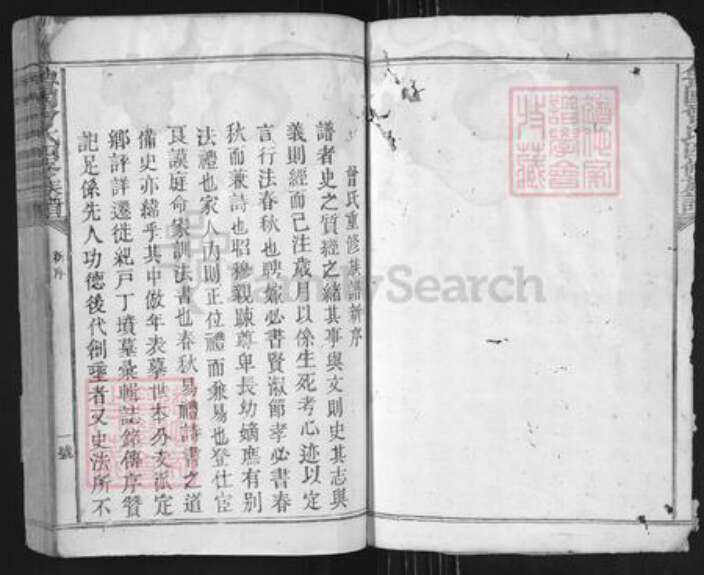 曾氏重修族譜新序
譜者史之質經之緒其事與文則史其志與
義則經而已注歲月以係生死考心迹以定
言行法春秋也聘嫁必書賢淑節孝必書春
秋而兼詩也昭穆親疎尊卑長幼嫡庶有别
法禮也家人內則正位禮而兼易也登仕宦
良謨庭命家訓法書也春秋易禮詩書之道
備史亦緯乎其中倣年表摹世本分支派定
鄉評詳遷徙紀戶丁墳墓彙輯誌銘傳序贊
記足係先人功德後代創垂者又史法所不
新序
一號
FamilySearch